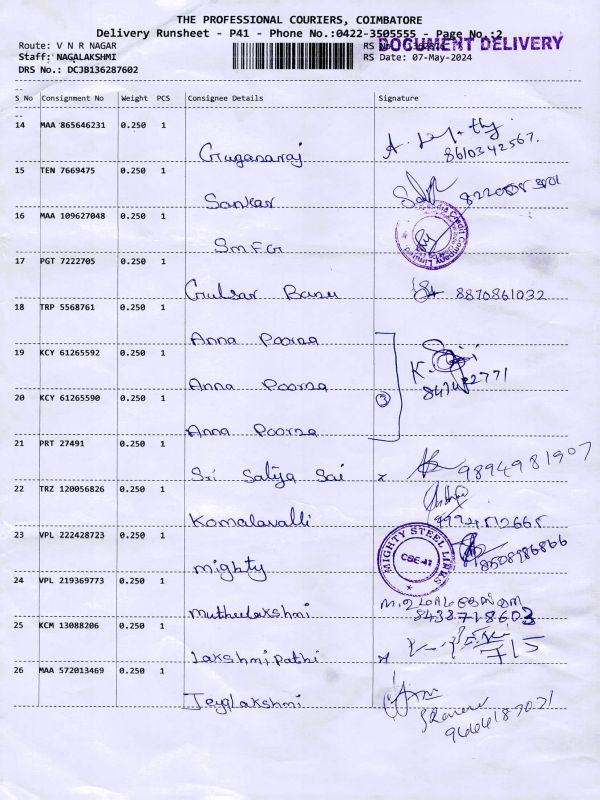 THE PROFESSIONAL COURIERS, COIMBATORE
Delivery Runsheet - P41 - Phone No.:0422-3505555 - Page No.:2
Route: V N R NAGAR RS No.:
DOCUMENT DELIVERY
Staff: NAGALAKSHMI RS Date: 07-May-2024
DRS No.: DCJB136287602
S No Consignment No Weight PCS Consignee Details Signature
14 MAA 865646231 0.250 1
Guganaraj 8610342567.
15 TEN 7669475 0.250 1
Sankar
16 MAA 109627048 0.250 1
SMFG
17 PGT 7222705 0.250 1
Gulsar Banu 8870861032
18 TRP 5568761 0.250 1
Anna Poorna
19 KCY 61265592 0.250 1
Anna Poorna K.
20 KCY 61265590 0.250 1
3
Anna Poorna
21 PRT 27491 0.250 1
Sri Satya Sai x 9894981907
22 TRZ 120056826 0.250 1
Komalavalli
23 VPL 222428723 0.250 1
MIGHTY STEEL LINKS
CBE-41
mighty 8508986866
24 VPL 219369773 0.250 1
muthulakshmi 8438718603
25 KCM 13088206 0.250 1
Lakshmipathi 715
26 MAA 572013469 0.250 1
Jeyalakshmi